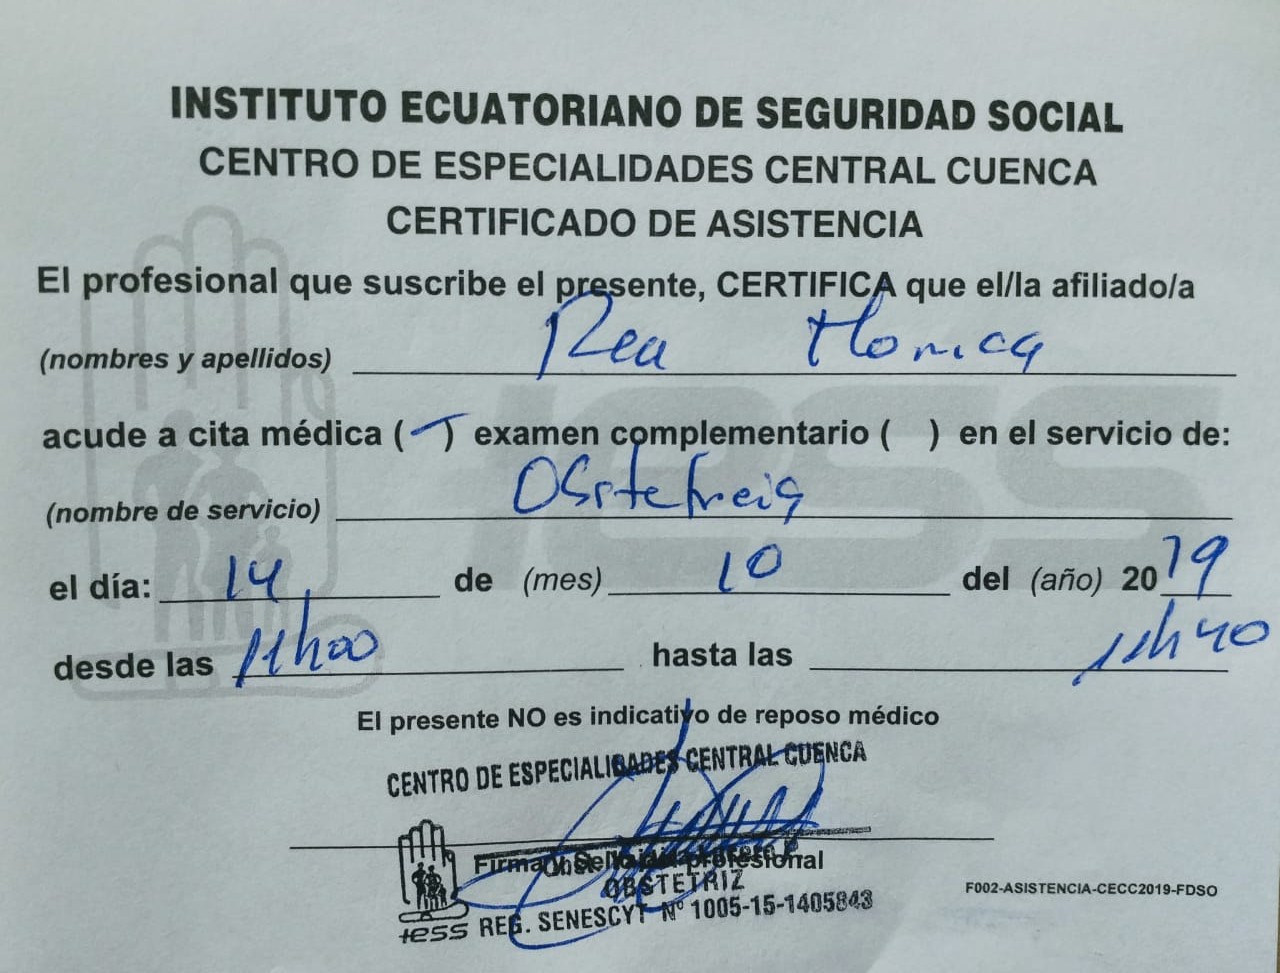 INSTITUTO ECUATORIANO DE SEGURIDAD SOCIAL
CENTRO DE ESPECIALIDADES CENTRAL CUENCA
CERTIFICADO DE ASISTENCIA
El profesional que suscribe el presente, CERTIFICA que el/la afiliado/a
(nombres y apellidos) Rea Monica
acude a cita médica ( ) examen complementario ( ) en el servicio de:
(nombre de servicio) Obstetricia
el día: 14 de (mes) 10 del (año) 2019
desde las 11h00 hasta las 11h40
El presente NO es indicativo de reposo médico
CENTRO DE ESPECIALIDADES CENTRAL CUENCA
Firma y Sello del profesional
OBSTETRIZ
REG. SENESCYT Nº 1005-15-1405843
iess
F002-ASISTENCIA-CECC2019-FDSO